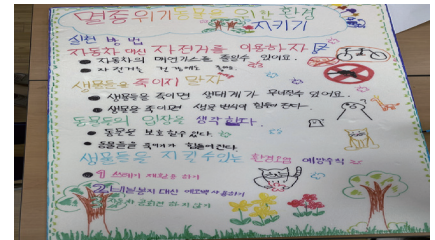 멸종위기동물을 위한 환경
지키기
실천 방법
자동차 대신 자전거를 이용하자
자동차의 매연가스를 줄일수 있어요.
자전거는 건강에도
생물들을 죽이지 말자
생물들을 죽이면 생태계가 무너질수 있어요.
생물을 죽이면 생물 번식이 힘들어 진다.
동물들의 입장을 생각한다.
동물을 보호할수 있다.
동물들을 죽이기 힘들어진다.
생물들을 지킬수있는 환경오염 예방수칙
쓰레기 재활용 하기
비닐봉지 대신 에코백 사용하기
하지 않기